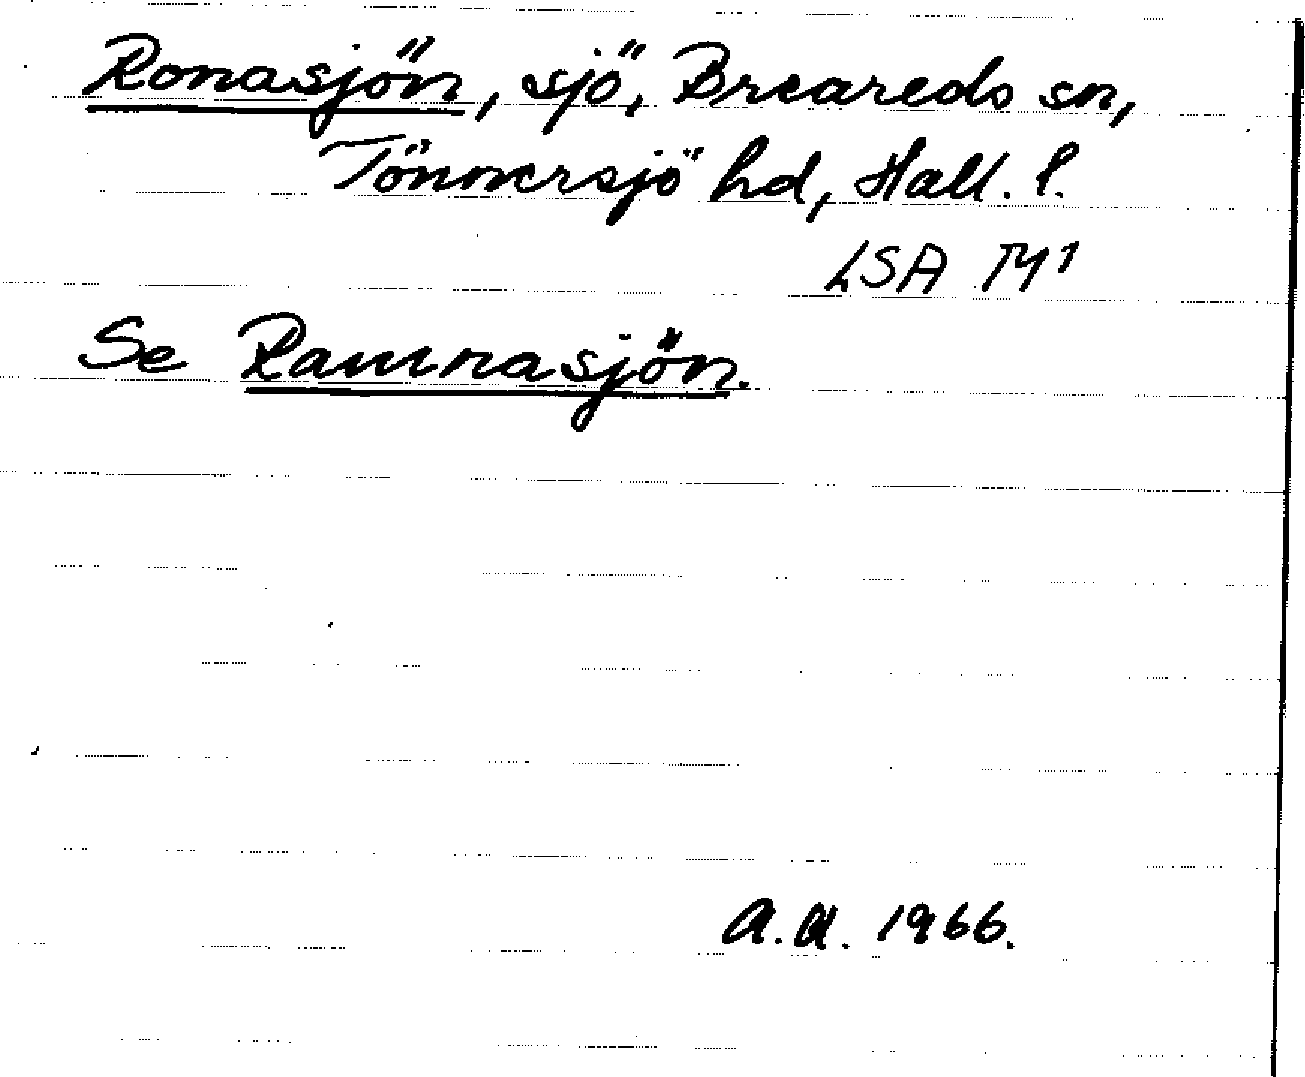 Ronasjön, sjö, Breareds sn,
Tönnersjö hd, Hall. l.
LSA M1
Se Ramnasjön.
A.A. 1966.